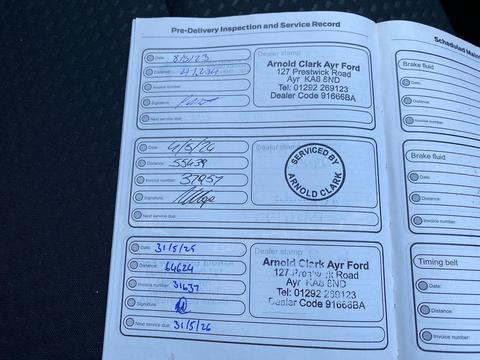 Pre-Delivery Inspection and Service Record
Date: 8/5/23
Distance: 47,204
Invoice number:
Signature:
Next service due:
Dealer stamp
Arnold Clark Ayr Ford
127 Prestwick Road
Ayr KA8 8ND
Tel: 01292 269123
Dealer Code 91666BA
Date: 4/5/24
Distance: 55439
Invoice number: 37957
Signature:
Next service due:
Dealer stamp
SERVICED BY
ARNOLD CLARK
Date: 31/5/25
Distance: 64624
Invoice number: 31637
Signature:
Next service due: 31/5/26
Dealer stamp
Arnold Clark Ayr Ford
127 Prestwick Road
Ayr KA8 8ND
Tel: 01292 269123
Dealer Code 91666BA
Brake fluid
Date:
Distance:
Invoice number:
Brake fluid
Date:
Distance:
Invoice number:
Timing belt
Date:
Distance:
Invoice number: